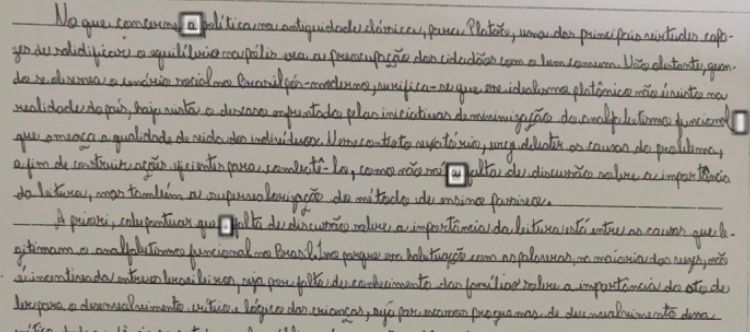 No que concerne a política na antiguidade clássica, para Platão, uma das principais virtudes capa-
zes de solidificar o equilíbrio na pólis era a preocupação dos cidadãos com o bem comum. Não obstante, quan-
do se observa o cenário social no Brasil pós-moderno, verifica-se que esse idealismo platônico não é visto na
realidade do país, haja vista o descaso enfrentado pelas iniciativas de minimização do analfabetismo funcional
que ameaça a qualidade de vida dos indivíduos. Nesse contexto, urge debater as causas do problema,
a fim de construir ações eficientes para combatê-lo, como não só a falta de discursão sobre a importância
da leitura, mas também a supervalorização do método de ensino
A priori, cabe pontuar que a falta de discursão sobre a importância da leitura está entre as causas que le-
gitimam o analfabetismo funcional no Brasil. Isso porque em habituação com as palavras, na maioria das vezes, não
é incentivada entre os brasileiros, seja por falta de conhecimento das famílias sobre a importância do ato de
ler para o desenvolvimento crítico e lógico das crianças, seja por escassos programas de desenvolvimento dessa